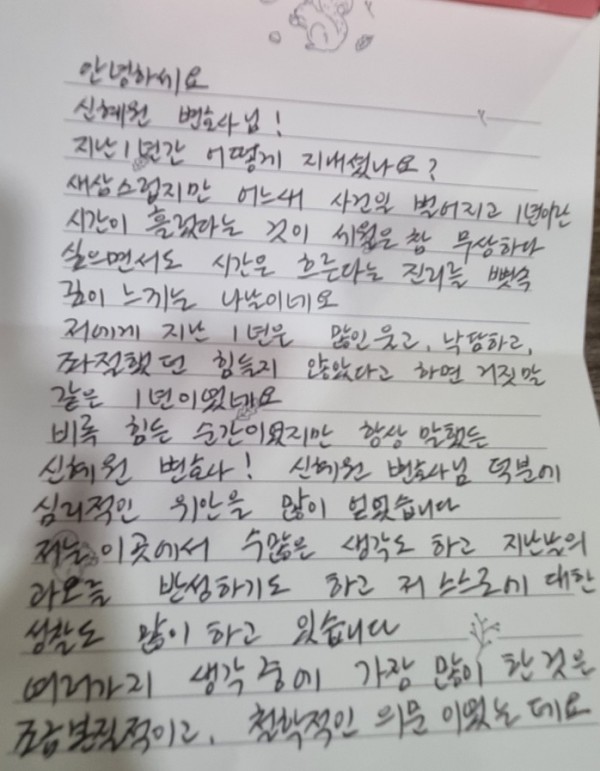 안녕하세요
신혜원 변호사님!
지난 1년간 어떻게 지내셨나요?
새삼스럽지만 어느새 사건일 벌어지고 1년이란
시간이 흘렀다는 것이 세월은 참 무상하다
싶으면서도 시간은 흐른다는 진리를 뼛속
깊이 느끼는 나날이네요
저에게 지난 1년은 많인 웃고, 낙담하고,
좌절했던 힘들지 않았다고 하면 거짓말
같은 1년이었네요
비록 힘든 순간이었지만 항상 말했듯
신혜원 변호사! 신혜원 변호사님 덕분에
심리적인 위안을 많이 얻었습니다
저는 이곳에서 수많은 생각도 하고 지난날의
과오를 반성하기도 하고 저 스스로에 대한
성찰도 많이 하고 있습니다
여러가지 생각 중에 가장 많이 한 것은
조금 본질적이고, 철학적인 의문이었는데요